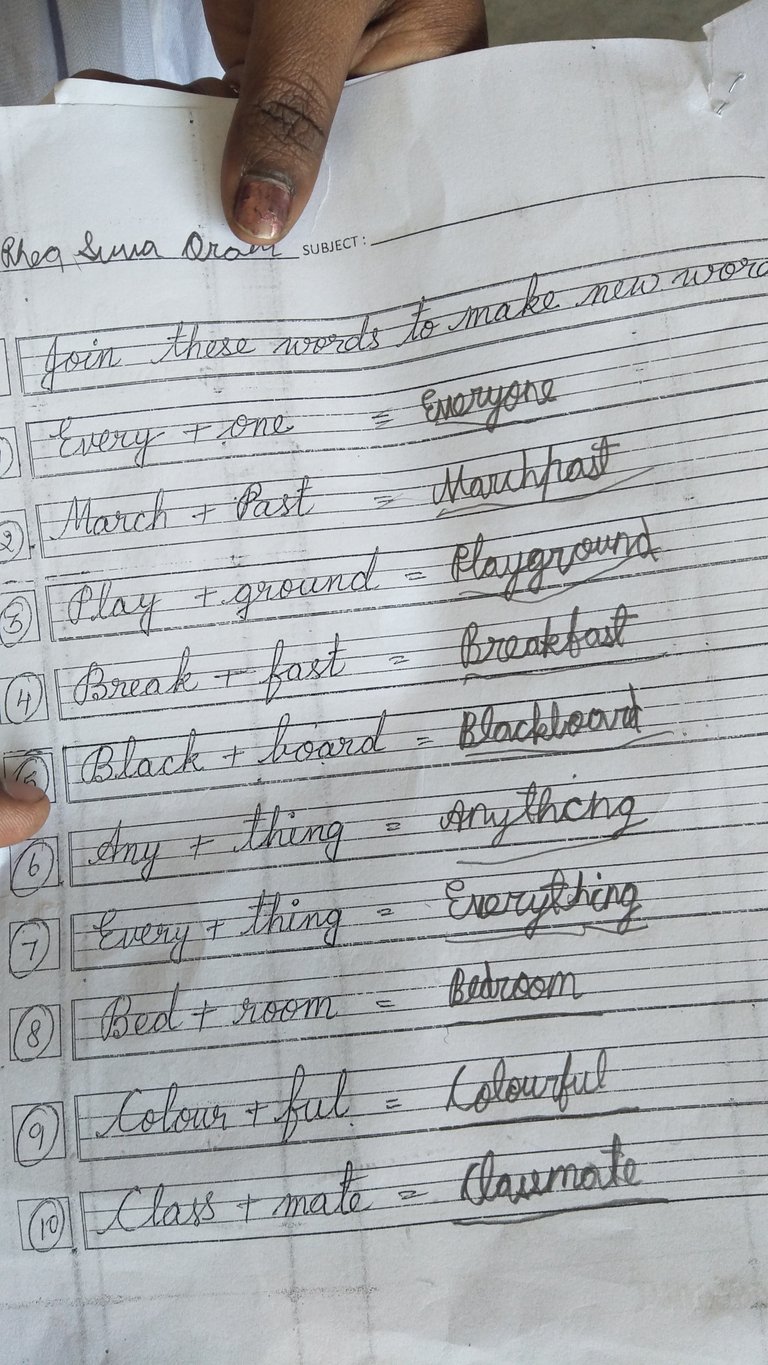 Rhea Suna Oram SUBJECT:
Join these words to make new word
1) Every + one = Everyone
2. March + Past = Marchpast
3 Play + ground = Playground
4 Break + fast = Breakfast
5 Black + board = Blackboard
6 Any + thing = Anything
7 Every + thing = Everything
8 Bed + room = Bedroom
9 Colour + ful = Colourful
10 Class + mate = Classmate